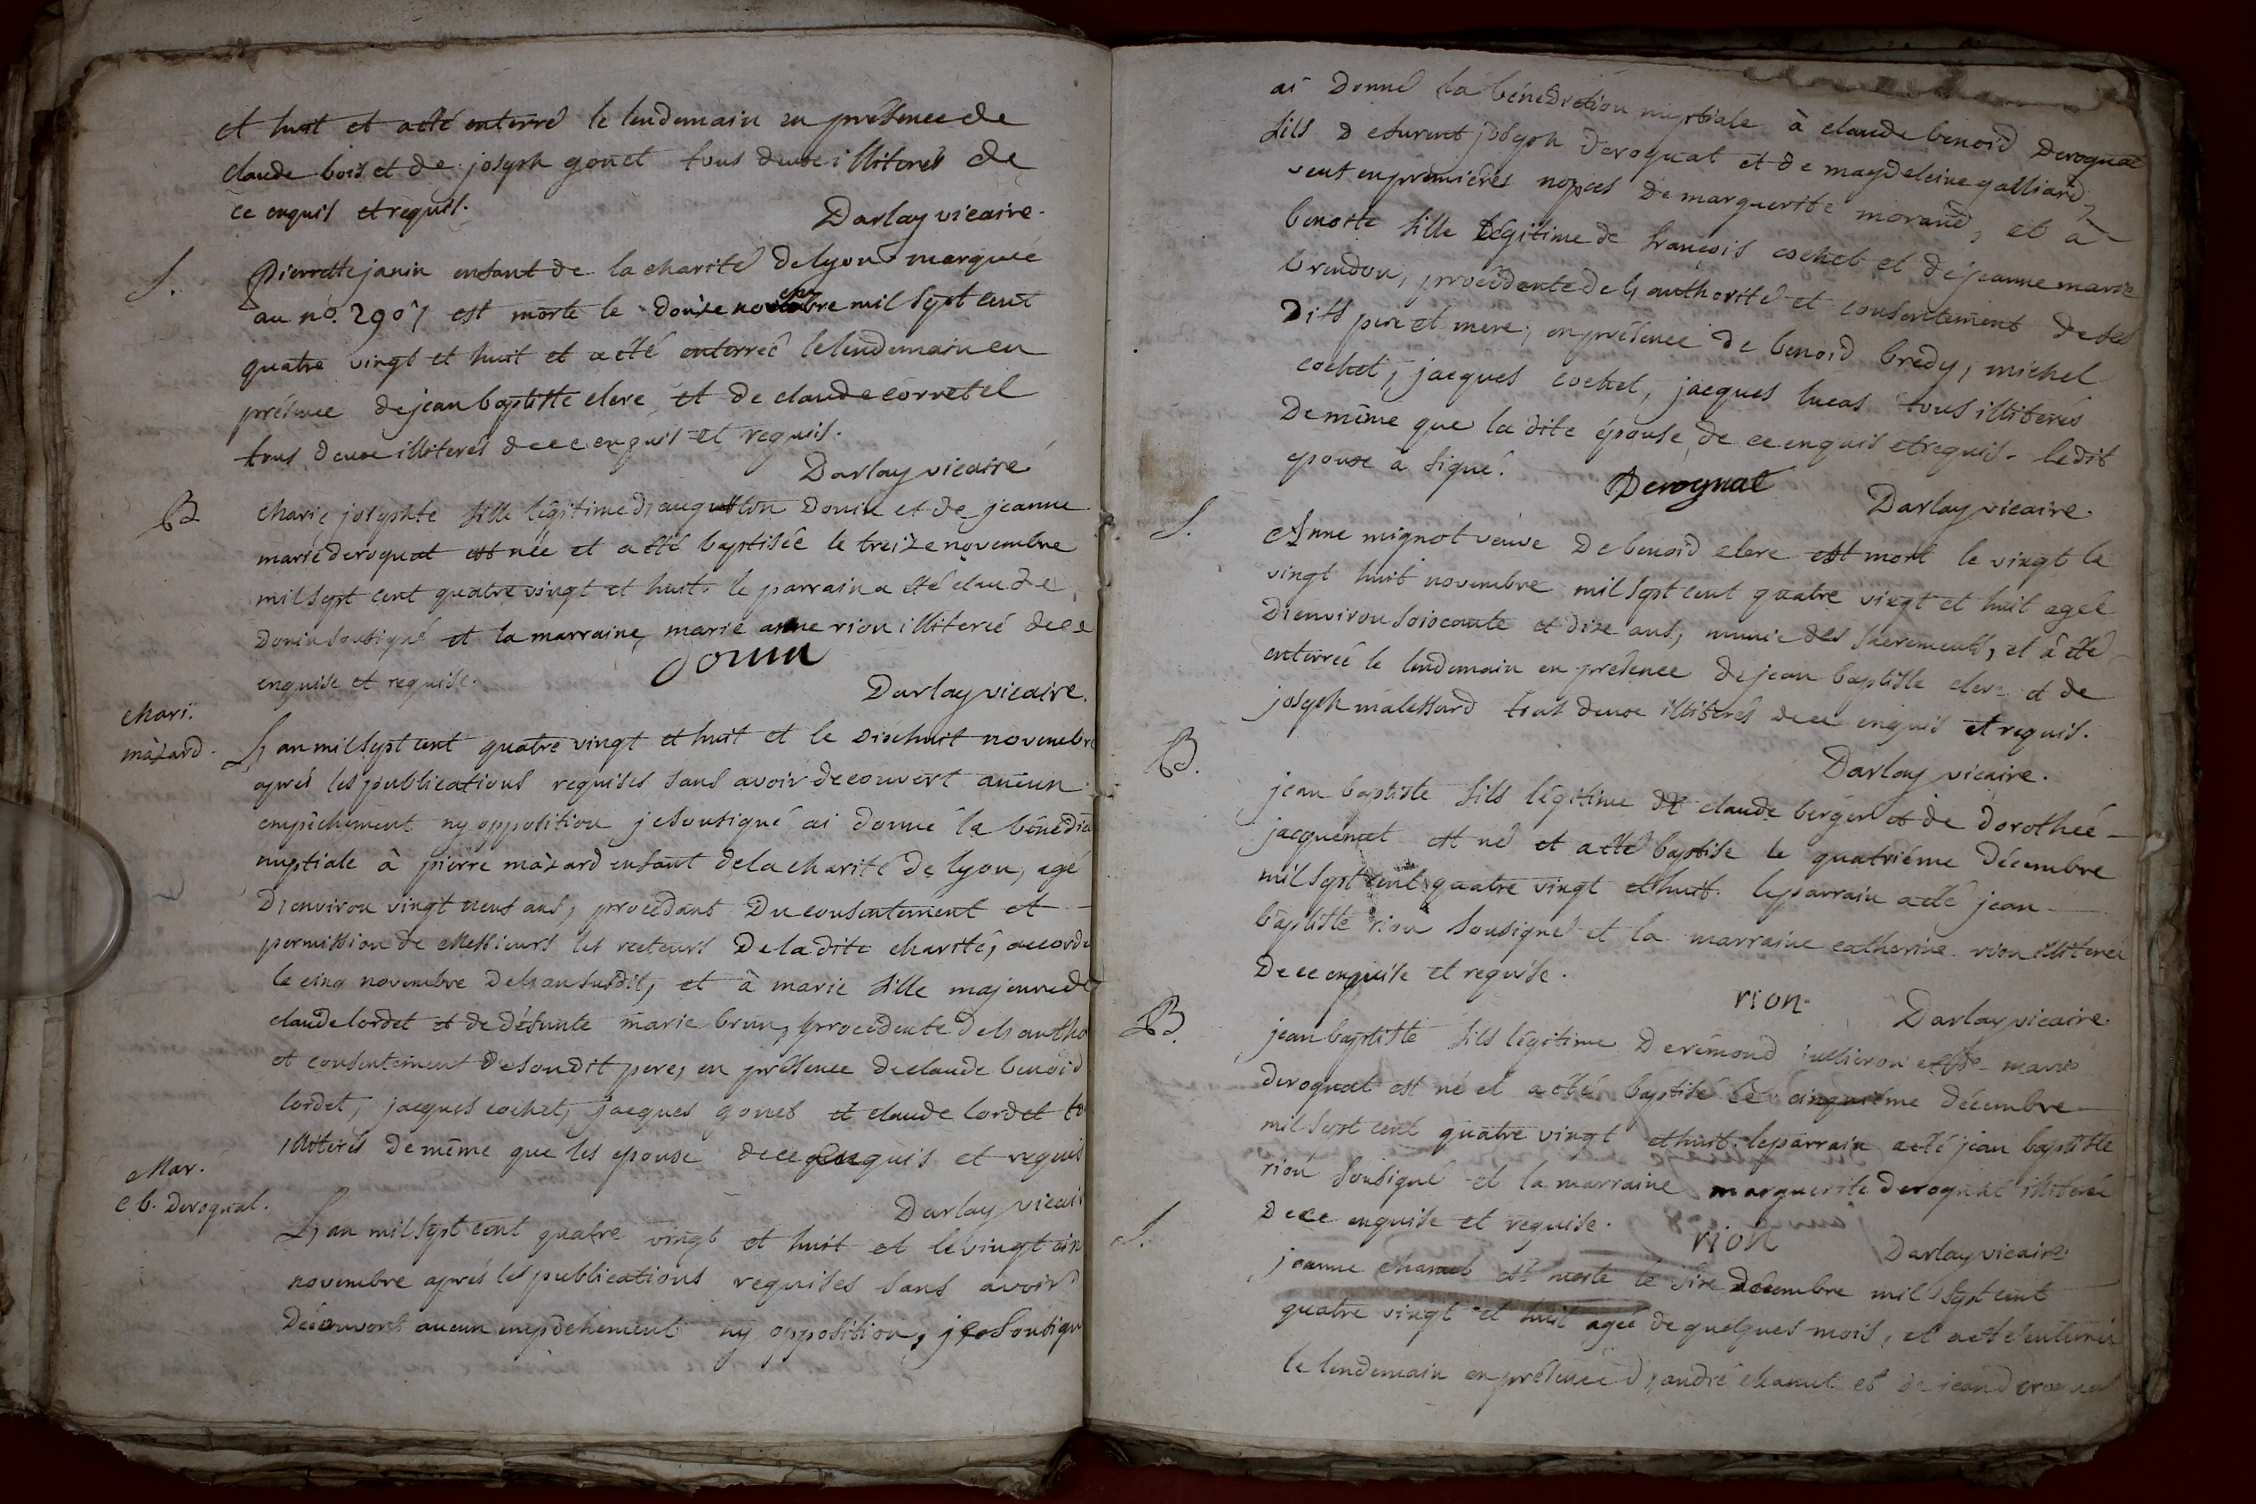 et huit et a été enterré le lendemain en présence de
claude bois et de joseph gonet tous deux illiterés de
ce enquis et requis.
Darlay vicaire.
S. Pierrette janin enfant de la charité de lyon marquée
au n.º 2907 est morte le douze novembre mil sept cent
quatre vingt et huit et a été enterrée le lendemain en
présence de jean baptiste clerc et de claude corretel
tous deux illiterés de ce enquis et requis.
Darlay vicaire
B Marie josephte fille légitime d'augustin donin et de jeanne
marie deroquat est née et a été baptisée le treize novembre
mil sept cent quatre vingt et huit. le parrain a été claude
donin sousigné et la marraine marie anne rion illiterée de ce
enquise et requise.
donin
Darlay vicaire.
Mari.
mazard.
L'an mil sept cent quatre vingt et huit et le dixhuit novembre
aprés les publications requises sans avoir decouvert aucun
empêchement ny opposition je sousigné ai donné la bénédic
nuptiale à pierre mazard enfant de la charité de lyon, agé
D'environ vingt neuf ans, procedant du consentement et
permission de Messieurs les recteurs De la dite charité, accordé
le cinq novembre de l'an susdit, et à marie fille majeure de
claude lordet et de défunte marie brun, procedente de l'autho
et consentement de son dit pere, en présence de claude benoid
lordet, jacques cochet, jacques gonet et claude lordet to
illiterés De même que les epoux de ce enquis et requis
Darlay vicair
Mar.
c b. Deroquat.
L'an mil sept cent quatre vingt et huit et le vingt cin
novembre aprés les publications requises sans avoir
Découvert aucun empêchement ny opposition, je sousigné
ai Donné la bénédiction nuptiale à claude benoid Deroquat
fils De furent joseph Deroquat et de magdeleine galliard,
veuf en premières nopces De marguerite morand, et à
benoite fille légitime de françois cochet et de jeanne marie
brendon, procédente de l'authorité et consentement de ses
Dits pere et mere, en présence de benoid bredy, michel
cochet, jacques cochet, jacques lucas tous illiterés
De même que la dite épouse, de ce enquis et requis. le dit
epoux à signé.
Deroquat
Darlay vicaire.
S. Anne mignot veuve De benoid clerc est mort le vingt le
vingt huit novembre mil sept cent quatre vingt et huit agée
D'environ soixcante et dix ans, munie des sacrements, et à été
enterrée le lendemain en présence de jean baptiste clerc et de
joseph malessard tous deux illiterés de ce enquis et requis.
Darlay vicaire.
B. jean baptiste fils légitime de claude berger et de dorothée
jacquemet est né et a été baptisé le quatriéme Décembre
mil sept cent quatre vingt et huit. le parrain a été jean
baptiste rion sousigné et la marraine catherine rion illiterée
De ce enquise et requise.
rion.
Darlay vicaire.
B. jean baptiste fils légitime De rémond jullieron et de marie
deroquat est né et a été baptisé le cinquiéme décembre
mil sept cent quatre vingt et huit. le parrain a été jean baptiste
rion sousigné et la marraine marguerite deroquat illiterée
De ce enquise et requise.
rion
Darlay vicaire
S. jeanne chanut est morte le six décembre mil sept cent
quatre vingt et huit agée de quelques mois, et a été enterrée
le lendemain en présence d'andré chanut et de jean deroquat